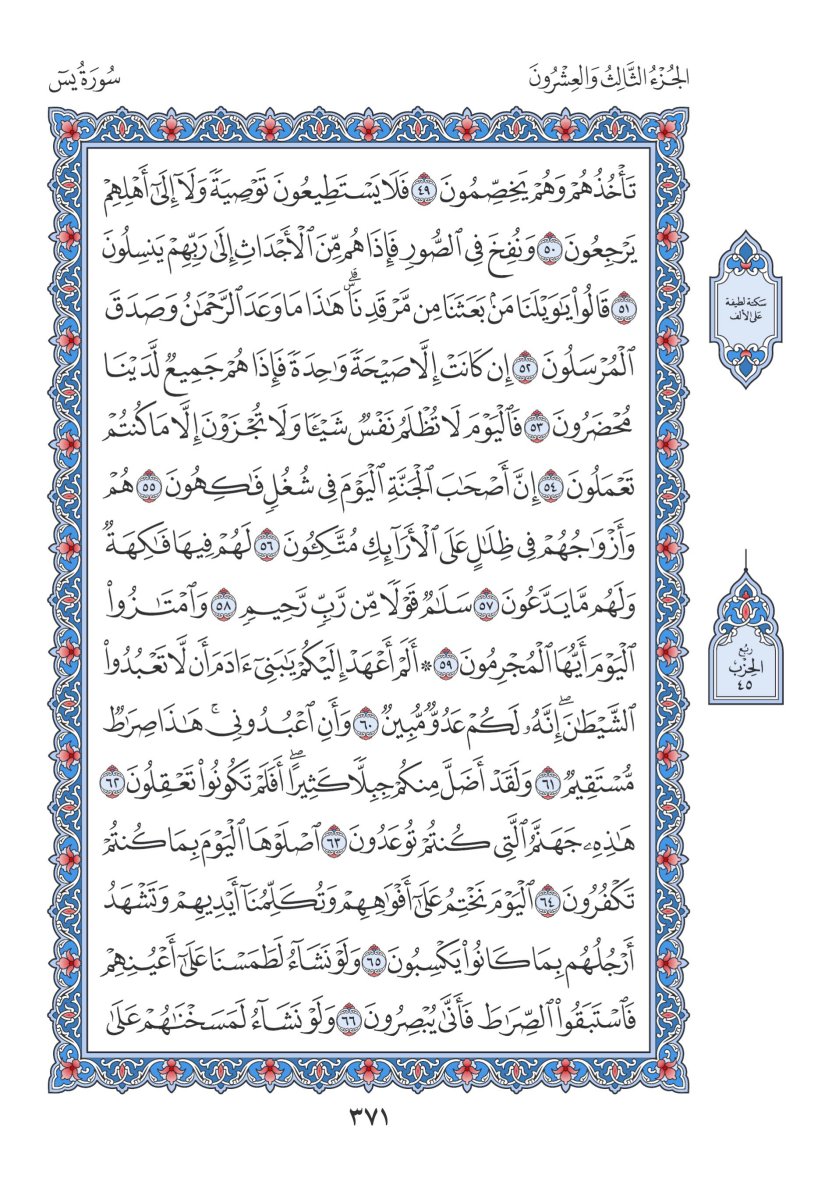 الجُزْءُ الثَّالِثُ وَالعِشْرُونَ
سُورَةُ يسٓ
تَأْخُذُهُمْ وَهُمْ يَخِصِّمُونَ ٤٩ فَلَا يَسْتَطِيعُونَ تَوْصِيَةً وَلَآ إِلَىٰٓ أَهْلِهِمْ
يَرْجِعُونَ ٥٠ وَنُفِخَ فِي ٱلصُّورِ فَإِذَا هُم مِّنَ ٱلْأَجْدَاثِ إِلَىٰ رَبِّهِمْ يَنسِلُونَ
٥١ قَالُوا۟ يَٰوَيْلَنَا مَنۢ بَعَثَنَا مِن مَّرْقَدِنَاۜۗ هَٰذَا مَا وَعَدَ ٱلرَّحْمَٰنُ وَصَدَقَ
ٱلْمُرْسَلُونَ ٥٢ إِن كَانَتْ إِلَّا صَيْحَةً وَٰحِدَةً فَإِذَا هُمْ جَمِيعٌ لَّدَيْنَا
مُحْضَرُونَ ٥٣ فَٱلْيَوْمَ لَا تُظْلَمُ نَفْسٌ شَيْـًٔا وَلَا تُجْزَوْنَ إِلَّا مَا كُنتُمْ
تَعْمَلُونَ ٥٤ إِنَّ أَصْحَٰبَ ٱلْجَنَّةِ ٱلْيَوْمَ فِي شُغُلٍ فَٰكِهُونَ ٥٥ هُمْ
وَأَزْوَٰجُهُمْ فِي ظِلَٰلٍ عَلَى ٱلْأَرَآئِكِ مُتَّكِـُٔونَ ٥٦ لَهُمْ فِيهَا فَٰكِهَةٌ
وَلَهُم مَّا يَدَّعُونَ ٥٧ سَلَٰمٌ قَوْلًا مِّن رَّبٍّ رَّحِيمٍ ٥٨ وَٱمْتَٰزُوا۟
ٱلْيَوْمَ أَيُّهَا ٱلْمُجْرِمُونَ ٥٩ ۞ أَلَمْ أَعْهَدْ إِلَيْكُمْ يَٰبَنِىٓ ءَادَمَ أَن لَّا تَعْبُدُوا۟
ٱلشَّيْطَٰنَۖ إِنَّهُۥ لَكُمْ عَدُوٌّ مُّبِينٌ ٦٠ وَأَنِ ٱعْبُدُونِيۚ هَٰذَا صِرَٰطٌ
مُّسْتَقِيمٌ ٦١ وَلَقَدْ أَضَلَّ مِنكُمْ جِبِلًّا كَثِيرًاۖ أَفَلَمْ تَكُونُوا۟ تَعْقِلُونَ ٦٢
هَٰذِهِۦ جَهَنَّمُ ٱلَّتِي كُنتُمْ تُوعَدُونَ ٦٣ ٱصْلَوْهَا ٱلْيَوْمَ بِمَا كُنتُمْ
تَكْفُرُونَ ٦٤ ٱلْيَوْمَ نَخْتِمُ عَلَىٰٓ أَفْوَٰهِهِمْ وَتُكَلِّمُنَآ أَيْدِيهِمْ وَتَشْهَدُ
أَرْجُلُهُم بِمَا كَانُوا۟ يَكْسِبُونَ ٦٥ وَلَوْ نَشَآءُ لَطَمَسْنَا عَلَىٰٓ أَعْيُنِهِمْ
فَٱسْتَبَقُوا۟ ٱلصِّرَٰطَ فَأَنَّىٰ يُبْصِرُونَ ٦٦ وَلَوْ نَشَآءُ لَمَسَخْنَٰهُمْ عَلَىٰ
سكتة لطيفة
على الألف
ربع
الحِزْب
٤٥
٣٧١